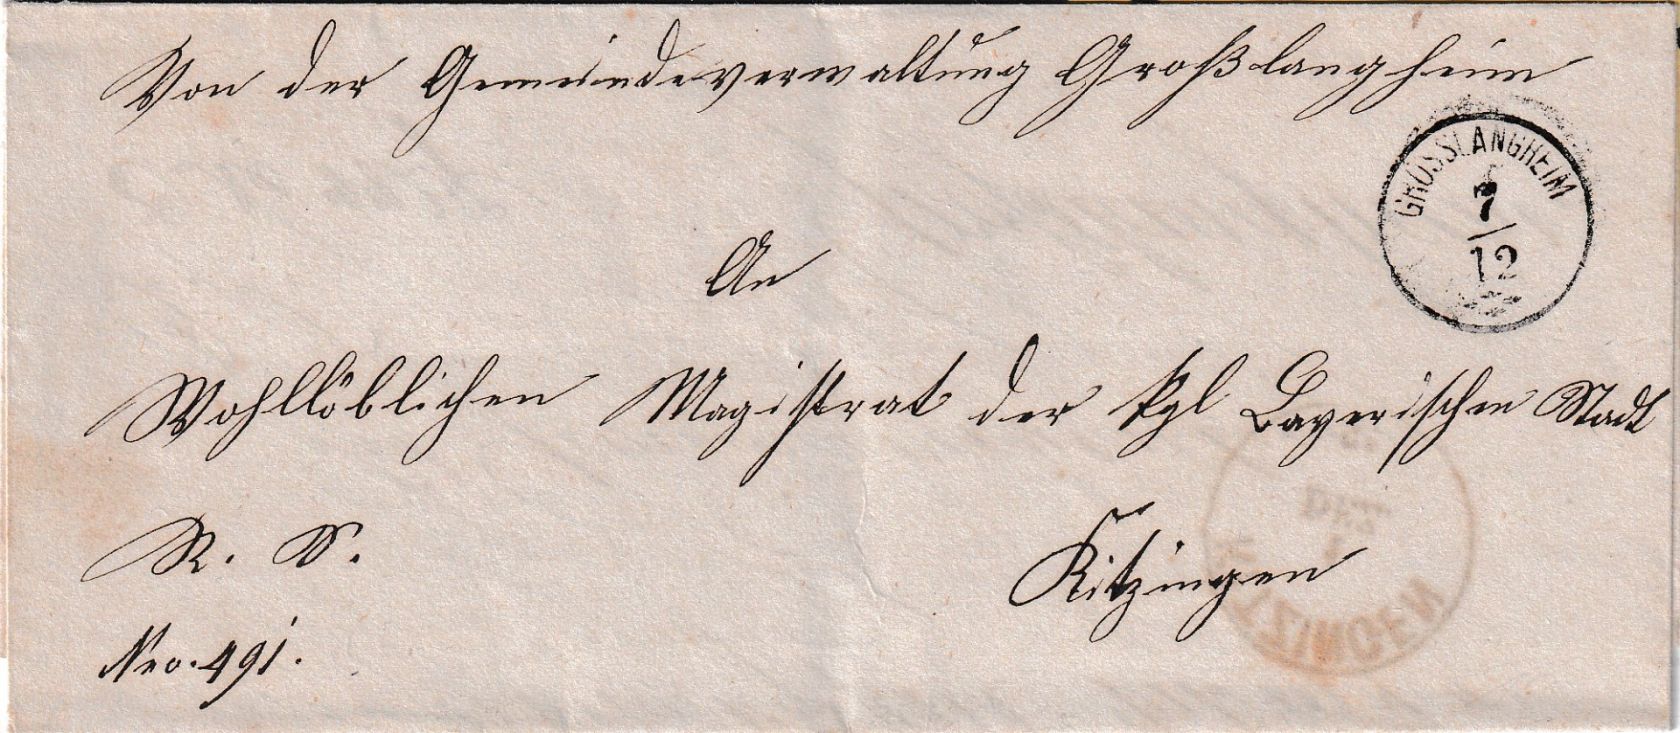 Von der Gemeindeverwaltung Großlangheim
GROSSLANGHEIM
7
12
An
Wohllöblichen Magistrat der kgl Bayerischen Stadt
R. S.
Kitzingen
Nro. 491.
KITZINGEN